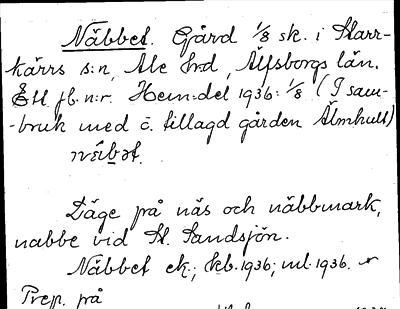 Näbbet. Gård 1/8 sk. i Starr-
kärrs s:n, Ale hrd, Älfsborgs län.
Ett jb.n:r. Hem:del 1936: 1/8 (I sam-
-bruk med c. tillagd gården Älmhult)
Läge på näs och näbbmark,
nabbe vid St. Sandsjön.
Näbbet ek.; kb. 1936; ml. 1936.
Prep. på